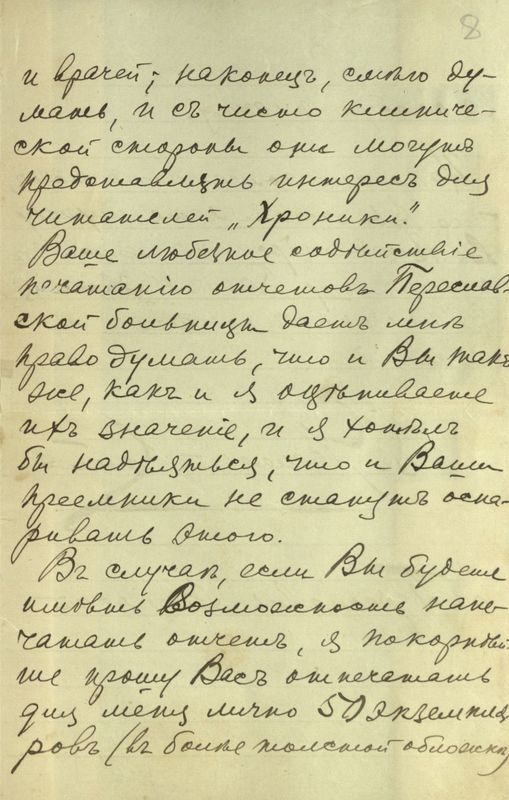 8
и врачей; наконецъ, смѣю ду-
мать, и съ чисто клиниче-
ской стороны они могутъ
представлять интересъ для
читателей „Хроники".
Ваше любезное содѣйствіе
печатанію отчетовъ Переслав-
ской больницы даетъ мнѣ
право думать, что и Вы так
же, какъ и я оцѣниваете
ихъ значеніе, и я хотѣлъ
бы надѣяться, что и Ваши
преемники не станутъ оспа-
ривать этого.
Въ случаѣ, если Вы будете
имѣть возможность напе-
чатать отчетъ, я покорнѣй
ше прошу Васъ отпечатать
для меня лично 50 экземпля
ровъ (въ болѣе толстой обложкѣ)